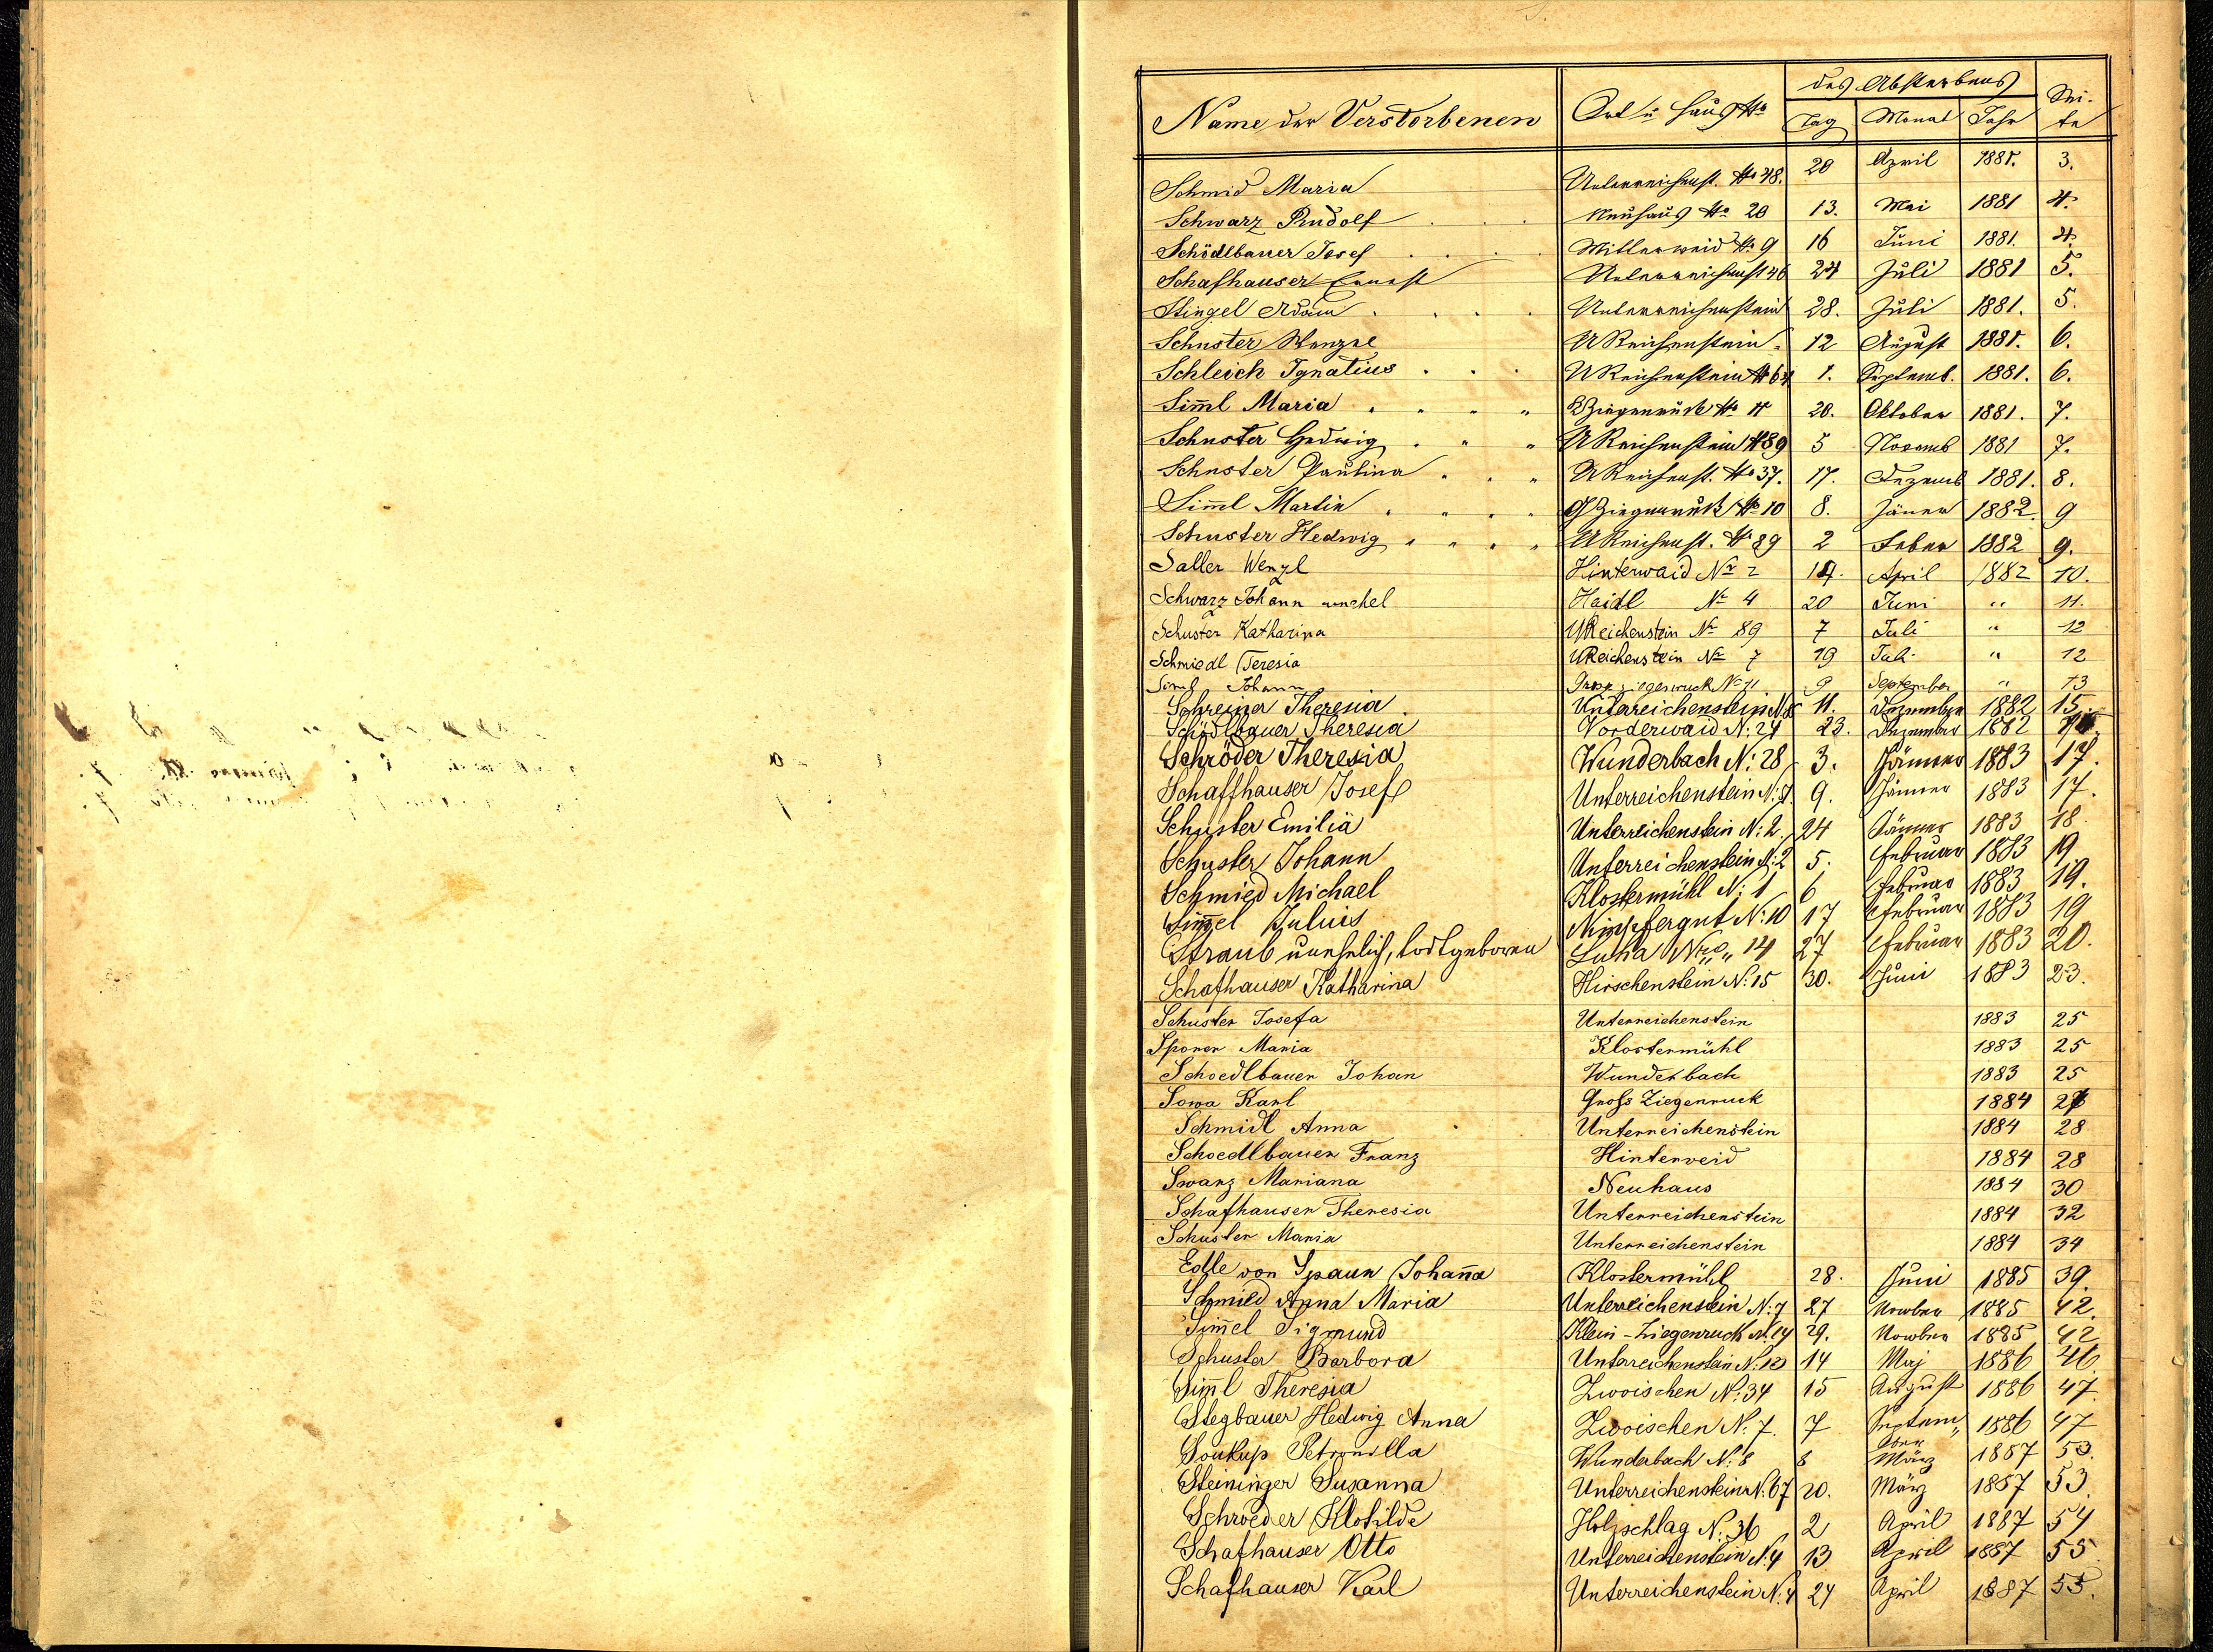 S.
Name der Verstorbenen Ort u Haus No des Absterbens Sei-
Tag Monat Jahr te
Schmid Maria Unterreichenst. No 48. 20 April 1881. 3.
Schwarz Rudolf Neuhaus No 20 13. Mai 1881 4.
Schödlbauer Josef Mitterwaid No 9 16 Juni 1881. 4.
Schafhauser Ernest Unterreichenst 46 24 Juli 1881 5.
Stingel Adam Unterreichenstein 28. Juli 1881. 5.
Schuster Wenzel U Reichenstein 12 August 1881. 6.
Schleich Ignatius U Reichenstein No 64 1. Septemb. 1881. 6.
Sim̄l Maria Ziegenruck No 11 20. Oktober 1881. 7.
Schuster Hedwig U Reichenstein No 89 5 Novemb 1881 7.
Schuster Paulina U Reichenst. No 37. 17. Dezemb 1881. 8.
Sim̄l Martin G Ziegenruck No 10 8. Jäner 1882. 9
Schuster Hedwig U Reichenst. No 89 2 Feber 1882 9.
Saller Wenzl Hinterwaid No 2 14. April 1882 10.
Schwarz Johann unehel Haidl No 4 20 Juni " 11.
Schuster Katharina UReichenstein No 89 7 Juli " 12
Schmiedl Teresia UReichenstein No 7 19 Juli " 12
Siml Johann Gross Ziegenruck No 11 9 September " 13
Schreiner Theresia Unterreichenstein 11. Dezember 1882 15.
Schödlbauer Theresia Vorderwaid N: 24 23. Dezember 1882
Schröder Theresia Wunderbach N: 28 3. Jänner 1883 17.
Schaffhauser Josef Unterreichenstein 9. Jänner 1883 17.
Schuster Emilia Unterreichenstein N: 2. 24 Jänner 1883 18
Schuster Johann Unterreichenstein N: 2 5. Februar 1883 19
Schmied Michael Klostermühl N: 1 6 Februar 1883 19.
Sim̄el Juluis Nimpfergut N: 10 17 Februar 1883 19
Straub unehelich, todtgeboren Luha Nro 14 27 Februar 1883 20.
Schafhauser Katharina Hirschenstein N: 15 30. Juni 1883 23.
Schuster Josefa Unterreichenstein 1883 25
Sporer Maria Klostermühl 1883 25
Schoedlbauer Johan Wunderbach 1883 25
Sowa Karl Gross Ziegenruck 1884
Schmidl Anna Unterreichenstein 1884 28
Schoedlbauer Franz Hinterweid 1884 28
Swarz Mariana Neuhaus 1884 30
Schafhauser Theresia Unterreichenstein 1884 32
Schuster Maria Unterreichenstein 1884 34
Edle von Spaun Johan̄a Klostermühl 28. Juni 1885 39.
Schmied Anna Maria Unterreichenstein N: 7 27 Novber 1885 42.
Sim̄el Sigmund Klein-Ziegenruck N. 14 29. Novber 1885 42
Schuster Barbora Unterreichenstein N: 12 14 Maj 1886 46
Sim̄l Theresia Zwoischen N: 34 15 August 1886 47.
Stegbauer Hedwig Anna Zwoischen N: 7. 7 Septem„ 1886 47
ber
Soukup Petronilla Wunderbach N: 8 8 März 1887 53.
Steininger Susanna Unterreichenstein N. 67 20. März 1887 53.
Schroeder Klotilde Holzschlag N: 36 2 April 1887 54
Schafhauser Otto Unterreichenstein N. 4 13 April 1887 55
Schafhauser Karl Unterreichenstein N. 4 24 April 1887 55.